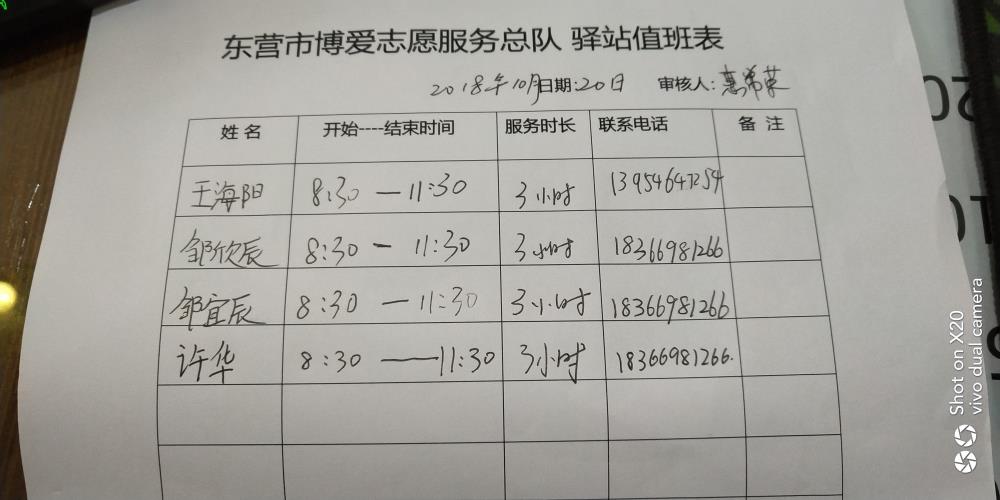 东营市博爱志愿服务总队 驿站值班表
2018年10月日期:20日 审核人:惠常荣
姓名 开始----结束时间 服务时长 联系电话 备注
王海阳 8:30 — 11:30 3小时 13954647254
邹欣辰 8:30 — 11:30 3小时 18366981266
邹宜辰 8:30 — 11:30 3小时 18366981266
许华 8:30 — 11:30 3小时 18366981266.
Shot on X20
vivo dual camera